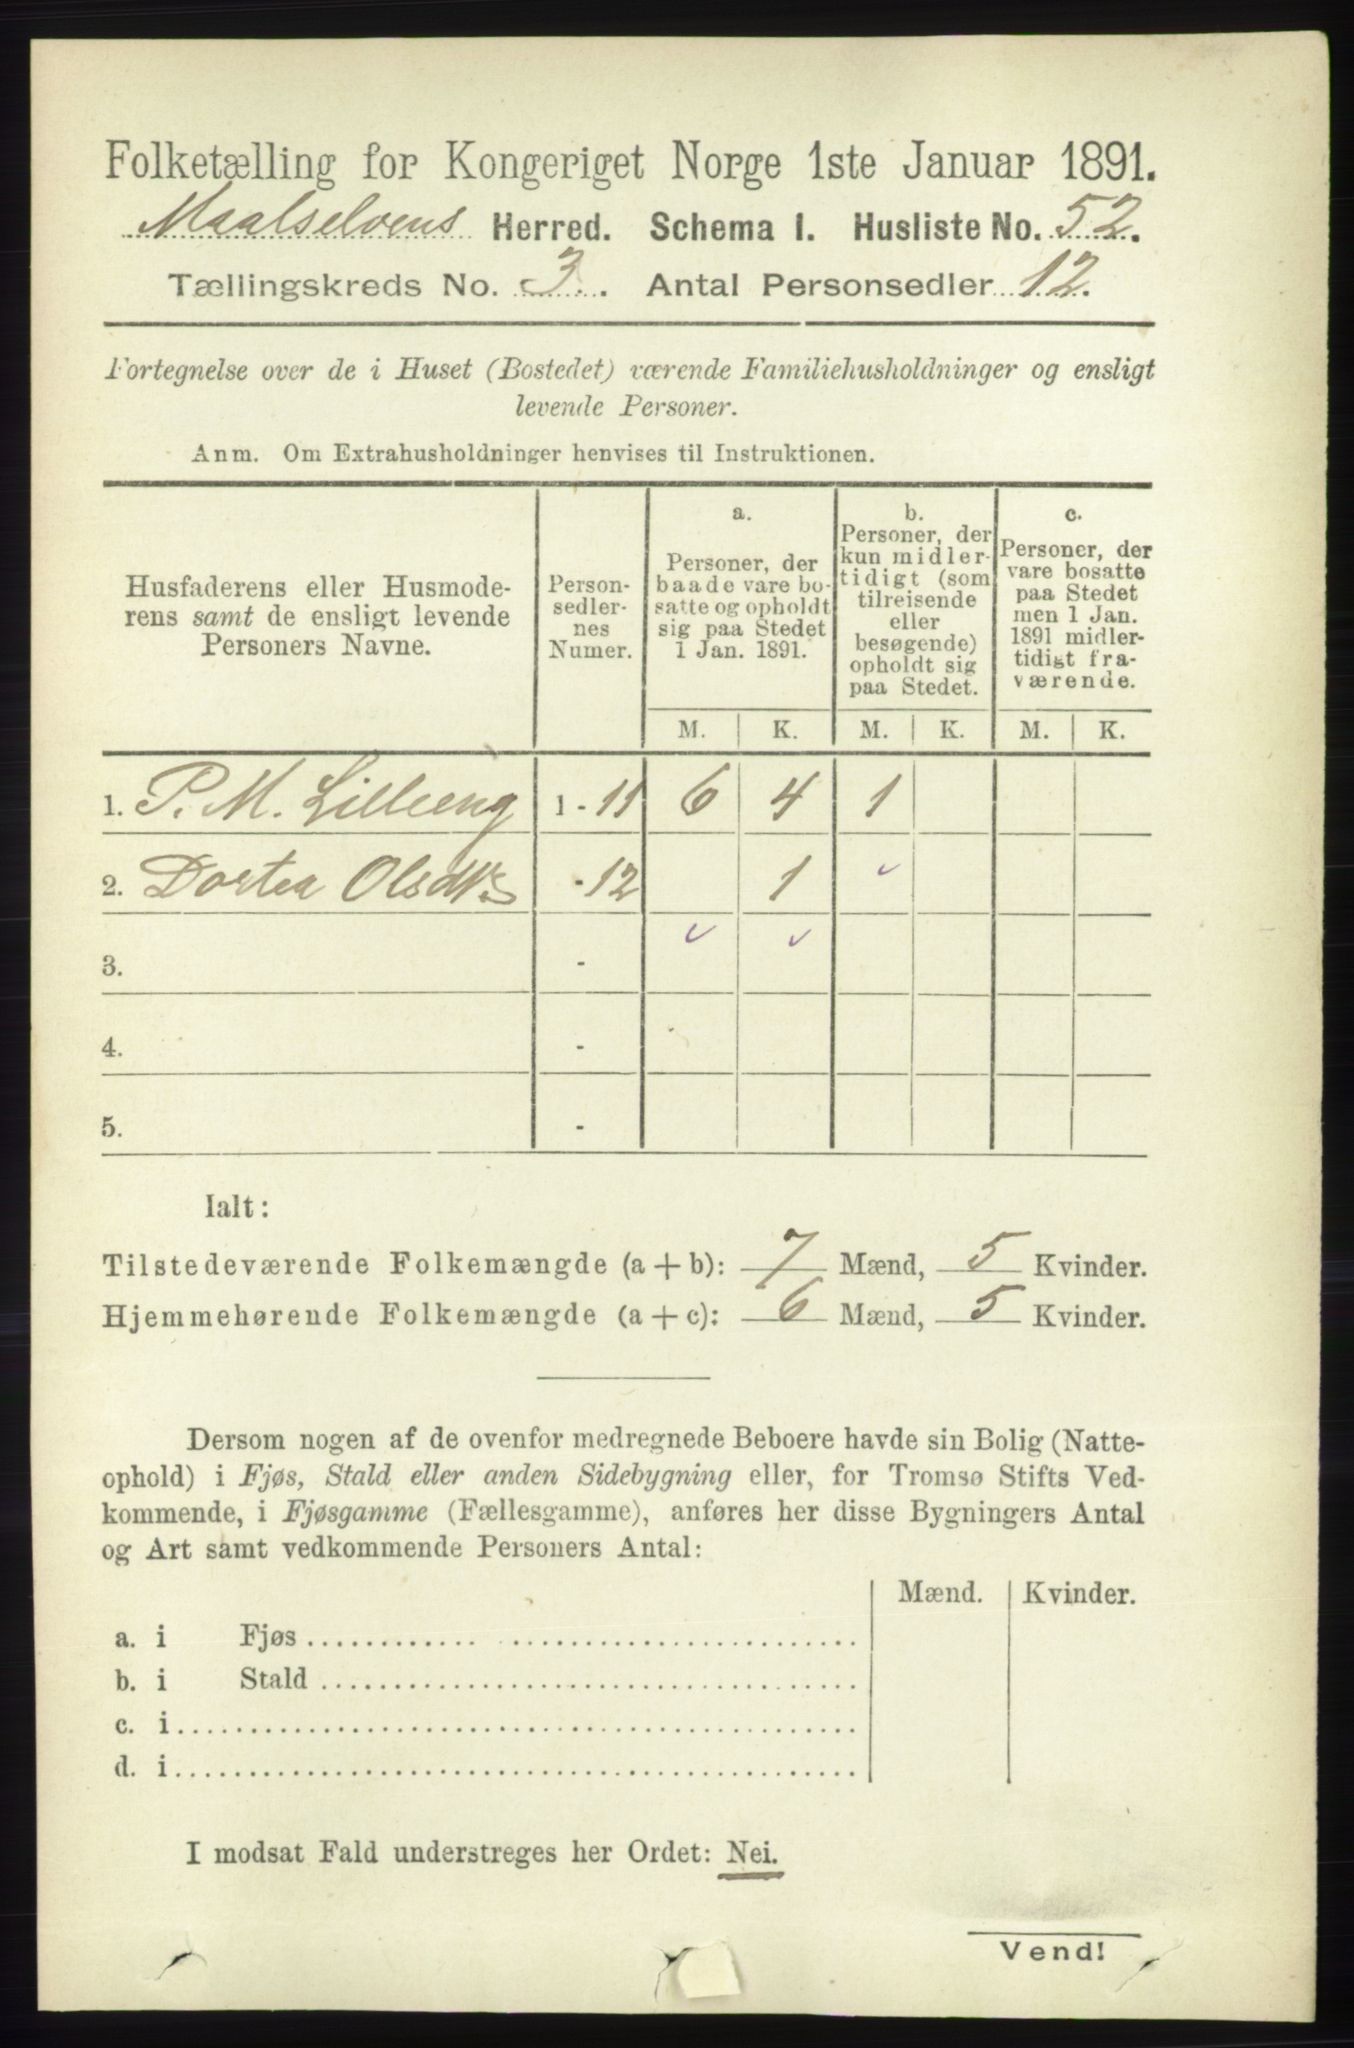 Folketælling for Kongeriget Norge 1ste Januar 1891.
Maalselvens Herred. Schema I. Husliste No. 52.
Tællingskreds No. 3. Antal Personsedler 12.
Fortegnelse over de i Huset (Bostedet) værende Familiehusholdninger og ensligt
levende Personer.
Anm. Om Extrahusholdninger henvises til Instruktionen.
Husfaderens eller Husmode-
rens samt de ensligt levende
Personers Navne.
Person-
sedler-
nes
Numer.
a.
Personer, der
baade vare bo-
satte og opholdt
sig paa Stedet
1 Jan. 1891.
b.
Personer, der
kun midler-
tidigt (som
tilreisende
eller
besøgende)
opholdt sig
paa Stedet.
c.
Personer, der
vare bosatte
paa Stedet
men 1 Jan.
1891 midler-
tidigt fra-
værende.
M. K. M. K. M. K.
1. P. M. Lilleeng 1 - 11 6 4 1
2. Dortea Olsdtr - 12 1
3. -
4. -
5. -
Ialt:
Tilstedeværende Folkemængde (a + b): 7 Mænd, 5 Kvinder.
Hjemmehørende Folkemængde (a + c): 6 Mænd, 5 Kvinder.
Dersom nogen af de ovenfor medregnede Beboere havde sin Bolig (Natte-
ophold) i Fjøs, Stald eller anden Sidebygning eller, for Tromsø Stifts Ved-
kommende, i Fjøsgamme (Fællesgamme), anføres her disse Bygningers Antal
og Art samt vedkommende Personers Antal:
Mænd. Kvinder.
a. i Fjøs
b. i Stald
c. i
d. i
I modsat Fald understreges her Ordet: Nei.
Vend!